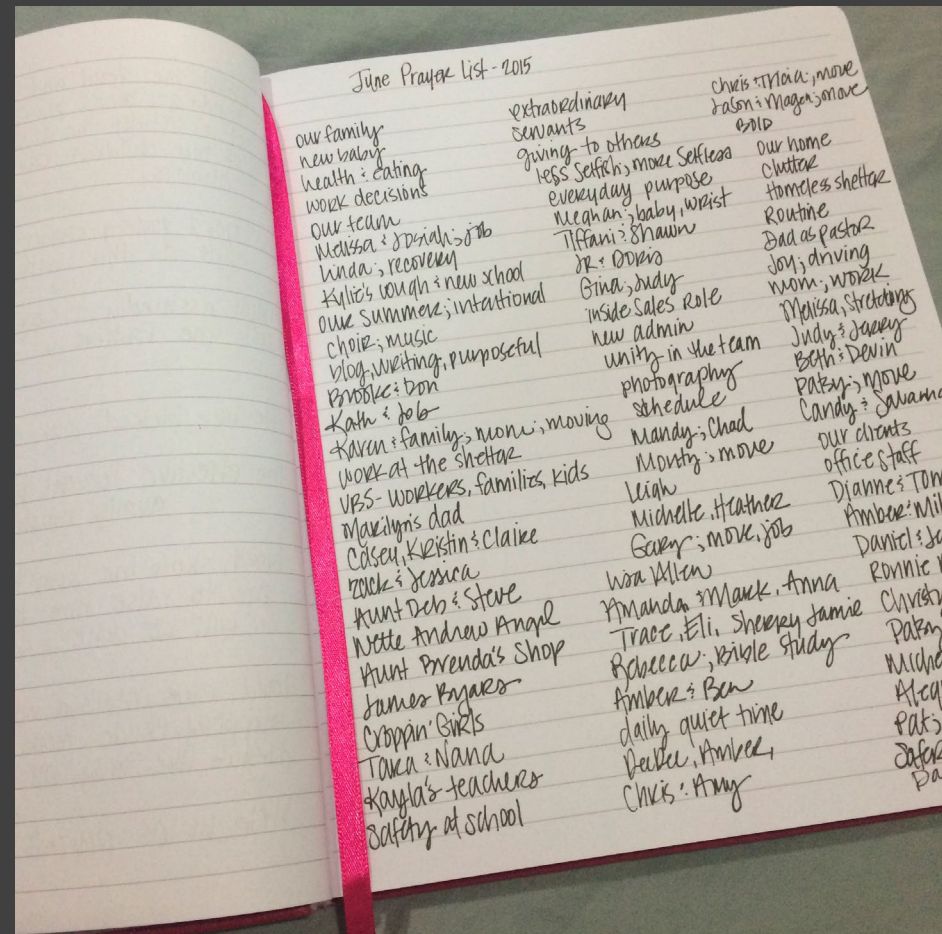 June Prayer List - 2015
our family
new baby
health & eating
work decisions
our team
Melissa & Josiah; job
Linda; recovery
Kylie's cough & new school
our summer; intentional
choir; music
blog, writing, purposeful
Brooke & Don
Kath & Job
Karen & family; mom; moving
work at the shelter
VBS - workers, families, kids
Marilyn's dad
Casey, Kristin & Claire
Zack & Jessica
Aunt Deb & Steve
Nette Andrew Angel
Aunt Brenda's Shop
James Byars
Croppin' Girls
Tara & Nana
Kayla's teachers
Safety at school
extraordinary
servants
giving to others
less selfish; more selfless
everyday purpose
Meghan; baby, wrist
Tiffani & Shawn
JR & Doris
Gina; Judy
inside sales role
new admin
unity in the team
photography
schedule
Mandy; Chad
Monty; move
Leigh
Michelle, Heather
Gary; move, job
Lisa Allen
Amanda & Mark, Anna
Trace, Eli, Sherry Jamie
Rebecca; Bible study
Amber & Ben
daily quiet time
DeeDee, Amber,
Chris & Amy
Chris & Thaia; move
Jason & Magen; move
BOLD
our home
clutter
Homeless shelter
Routine
Dad as pastor
Joy; driving
mom; work
Melissa, stretching
Judy & Jerry
Beth & Devin
Patsy; move
Candy & Savanna
our clients
office staff
Dianne & Tom
Amber
Daniel &
Ronnie